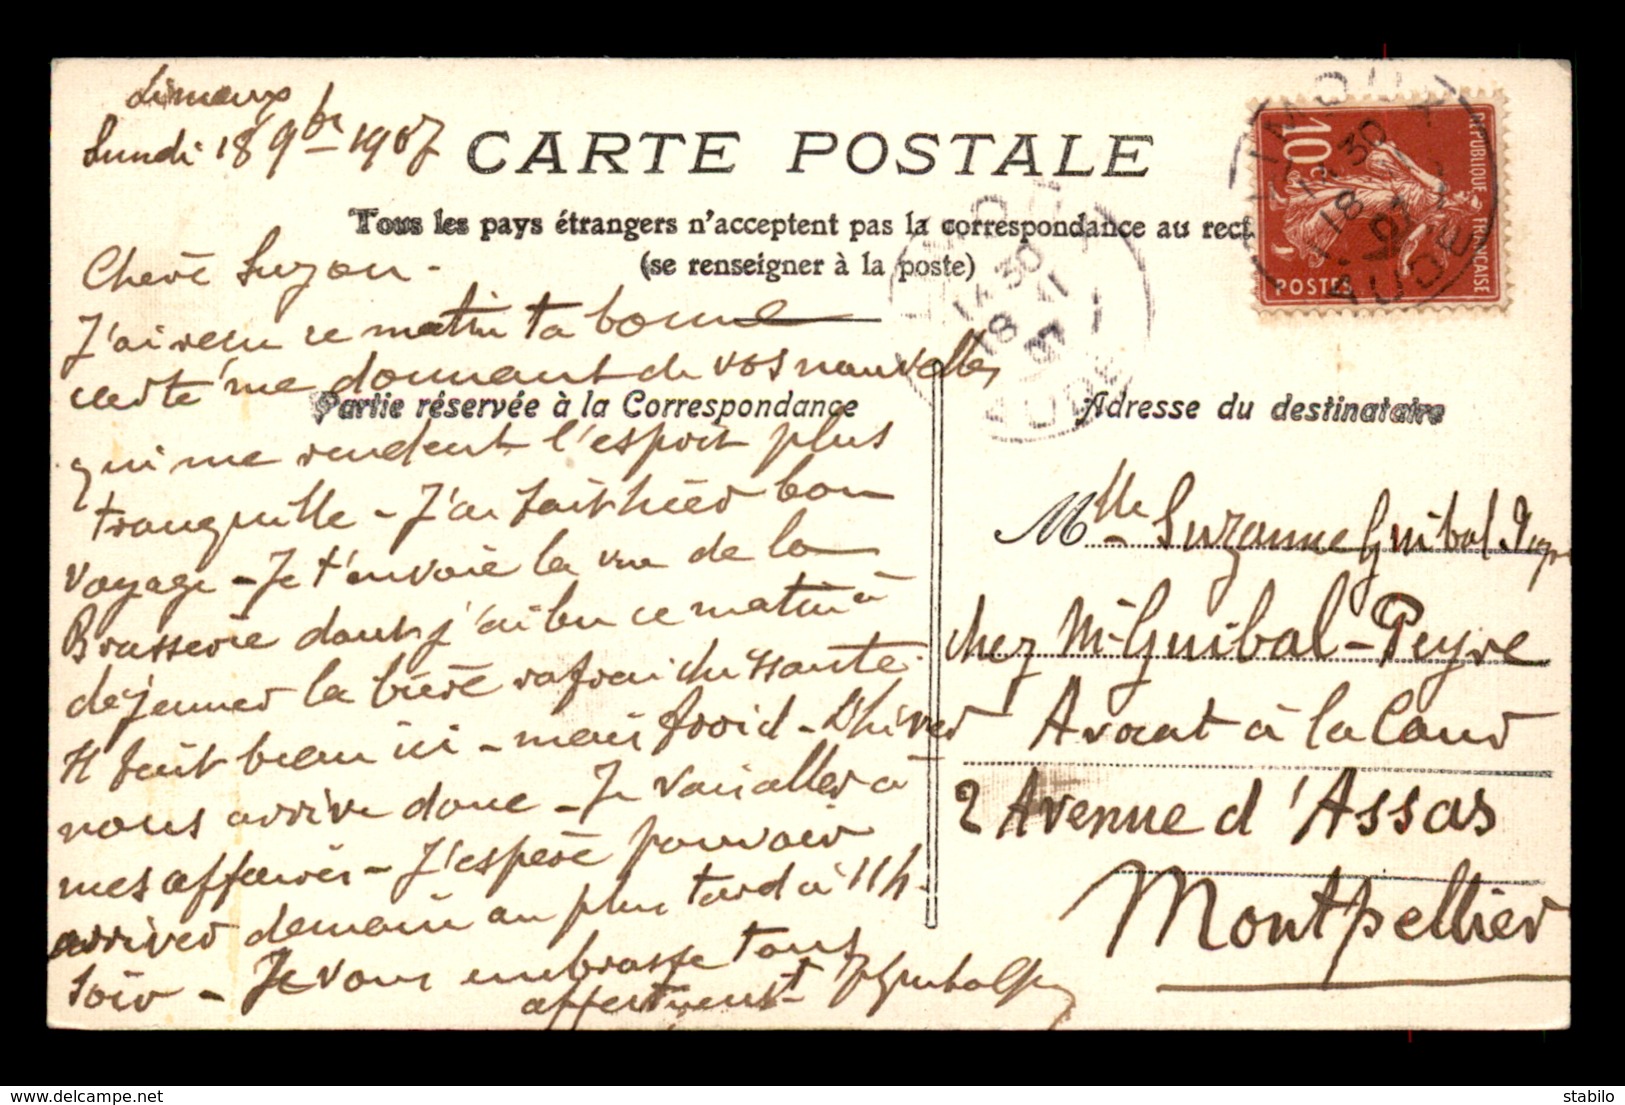 Limoux
Lundi 18 9bre 1907
CARTE POSTALE
Tous les pays étrangers n'acceptent pas la correspondance au rect
(se renseigner à la poste)
RÉPUBLIQUE FRANÇAISE
10c
POSTES
LIMOUX
17 30
18 11
07
AUDE
LIMOUX
17 30
18 11
07
AUDE
Cheré Suzon -
J'ai reçu ce matin ta bonne
carte me donnant de vos nouvelles
Partie réservée à la Correspondance
qui me rendent l'esprit plus
tranquille - J'ai fait hier bon
voyage - Je t'envoie la vue de la
Brasserie dont j'ai bu ce matin à
déjeuner la bière rafraichissante.
Il fait beau ici - mais froid - L'hiver
nous arrive donc - Je vais aller à
mes affaires - J'espère pouvoir
arriver demain au plus tard à 11 h.
soir - Je vous embrasse tous
affectueust
Adresse du destinataire
Mlle Suzanne Guibal Peyre
chez Mr Guibal-Peyre
Avocat à la Cour
2 Avenue d'Assas
Montpellier
https://www.delcampe.net
stabilo